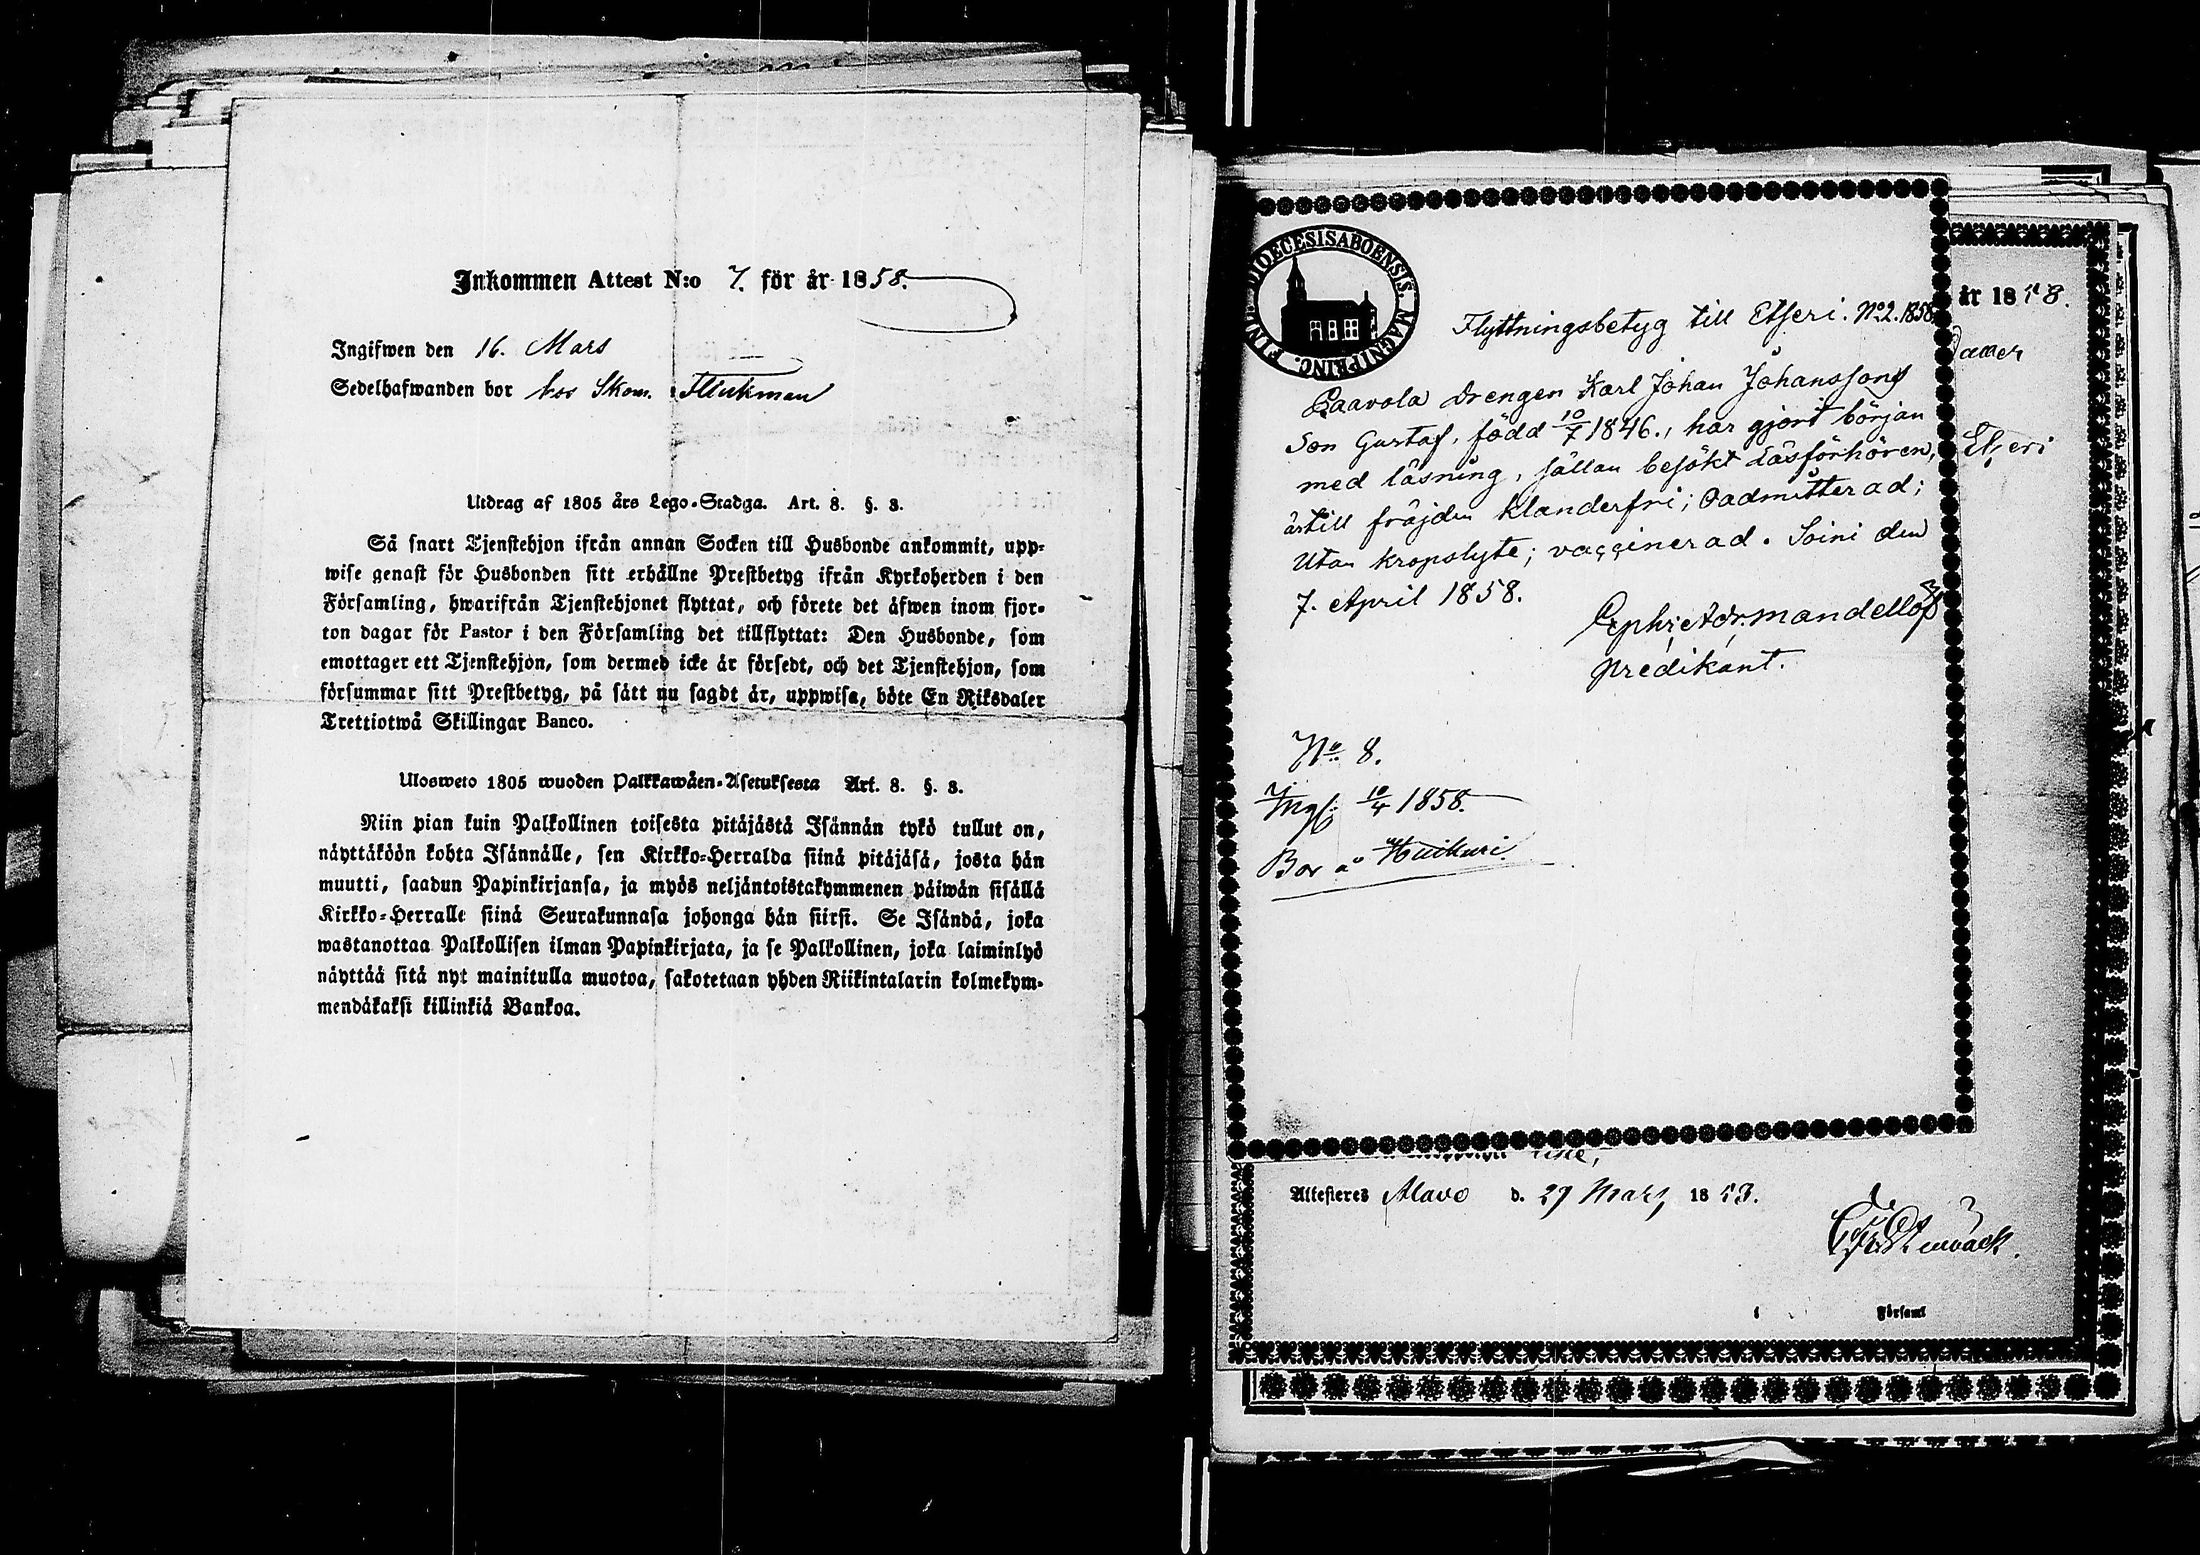 Inkommen Attest N:o 7. för år 1858.
Ingifwen den 16. Mars
Sedelhafwanden bor hos Skom. Flinkman
Utdrag af 1805 års Lego-Stadga. Art. 8. §. 3.
Så snart Tjenstehjon ifrån annan Socken till Husbonde ankommit, upp-
wise genast för Husbonden sitt erhållne Prestbetyg ifrån Kyrkoherden i den
Församling, hwarifrån Tjenstehjonet flyttat, och förete det äfwen inom fjor-
ton dagar för Pastor i den Församling det tillflyttat: Den Husbonde, som
emottager ett Tjenstehjon, som dermed icke är försedt, och det Tjenstehjon, som
försummar sitt Prestbetyg, på sätt nu sagdt är, uppwisa, böte En Riksdaler
Trettiotwå Skillingar Banco.
Ulosweto 1805 wuoden Palkkawäen-Asetuksesta Art. 8. §. 3.
Niin pian kuin Palkollinen toisesta pitäjästä Isännän tykö tullut on,
näyttäköön kohta Isännälle, sen Kirkko-Herralda siinä pitäjäsä, josta hän
muutti, saadun Papinkirjansa, ja myös neljäntoistakymmenen päiwän sisällä
Kirkko-Herralle siinä Seurakunnasa johonga hän siirsi. Se Isändä, joka
wastanottaa Palkollisen ilman Papinkirjata, ja se Palkollinen, joka laiminlyö
näyttää sitä nyt mainitulla muotoa, sakotetaan yhden Riikintalarin kolmekym-
mendäkaksi killinkiä Bankoa.
DIOECESIS ABOENSIS. MAGNI PRINC. FINL
Flyttningsbetyg till Etseri. No 2. 1858.
Paavola drengen Karl Johan Johanssons
Son Gustaf, född 10/7 1846., har gjort början
med läsning, sällan besökt Läsförhören,
är till fräjden klanderfri; Oadmitterad;
Utan kropslyte; vaccinerad. Soini den
7. April 1858.
Ephr. Adr. Mandellöf
predikant.
No 8.
Ingf. 10/4 1858.
Bor å Huikuri
år 1858.
Etseri
Attesteres Alavo d. 29 Mars 1858.
Församl